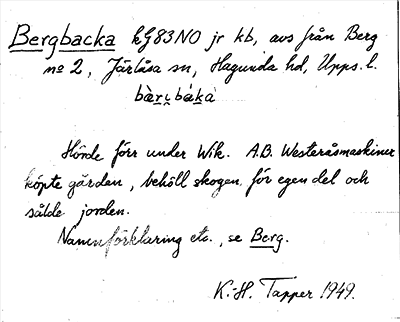 Bergbacka kG83NO jr kb, avs från Berg
nº 2, Järlåsa sn, Hagunda hd, Upps. l.
bæ̀rjbákà
Hörde förr under Wik. A.B. Westeråsmaskiner
köpte gården, behöll skogen för egen del och
sålde jorden.
Namnförklaring etc., se Berg.
K.-H. Tapper 1949.